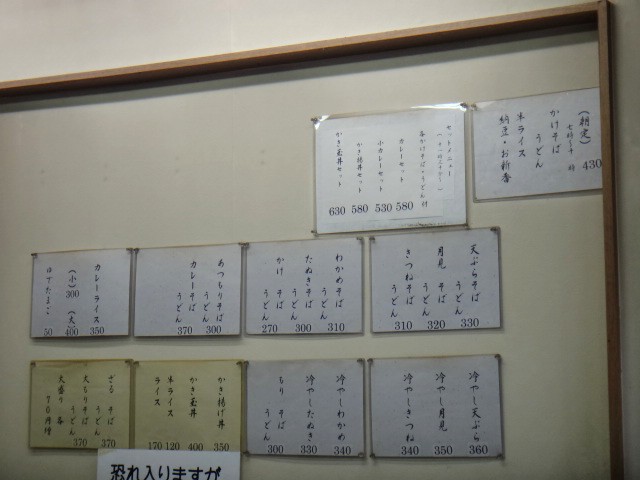 (朝定)
七時〜十時
430
かけそば
うどん
半ライス
納豆・お新香
セットメニュー
各かけそば・うどん付
カレーセット 580
小カレーセット 530
かき揚丼セット 580
かき玉丼セット 630
天ぷらそば
うどん 330
月見 そば
うどん 320
きつねそば
うどん 310
わかめそば
うどん 310
たぬきそば
うどん 300
かけ そば
うどん 270
あつもりそば
うどん 300
カレーそば
うどん 370
カレーライス 350
(大) 400
(小) 300
ゆでたまご 50
冷やし天ぷら 360
冷やし月見 350
冷やしきつね 340
冷やしわかめ 340
冷やしたぬき 330
もり そば
うどん 300
かき揚げ丼 350
かき玉丼 400
半ライス 120
ライス 170
ざる そば
うどん 370
大もりそば
うどん 370
大盛り 各
70円増
恐れ入りますが